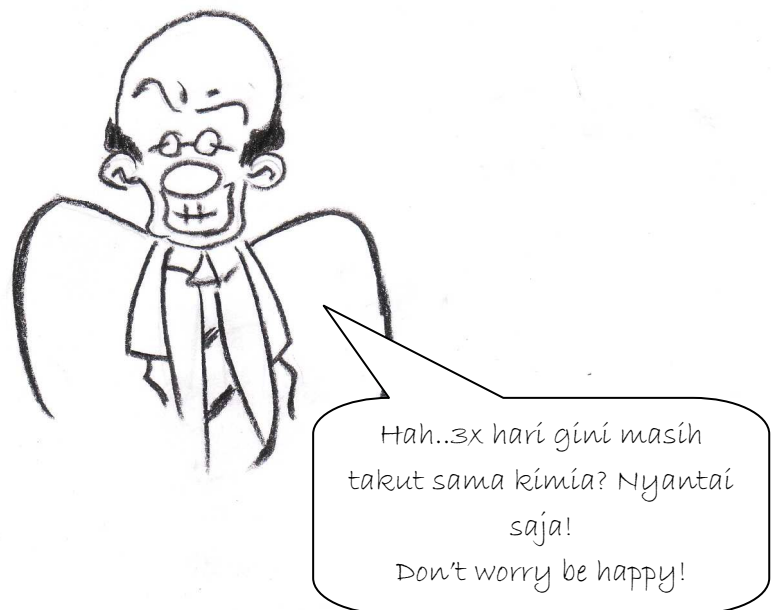 Hah..3x hari gini masih
takut sama kimia? Nyantai
saja!
Don't worry be happy!